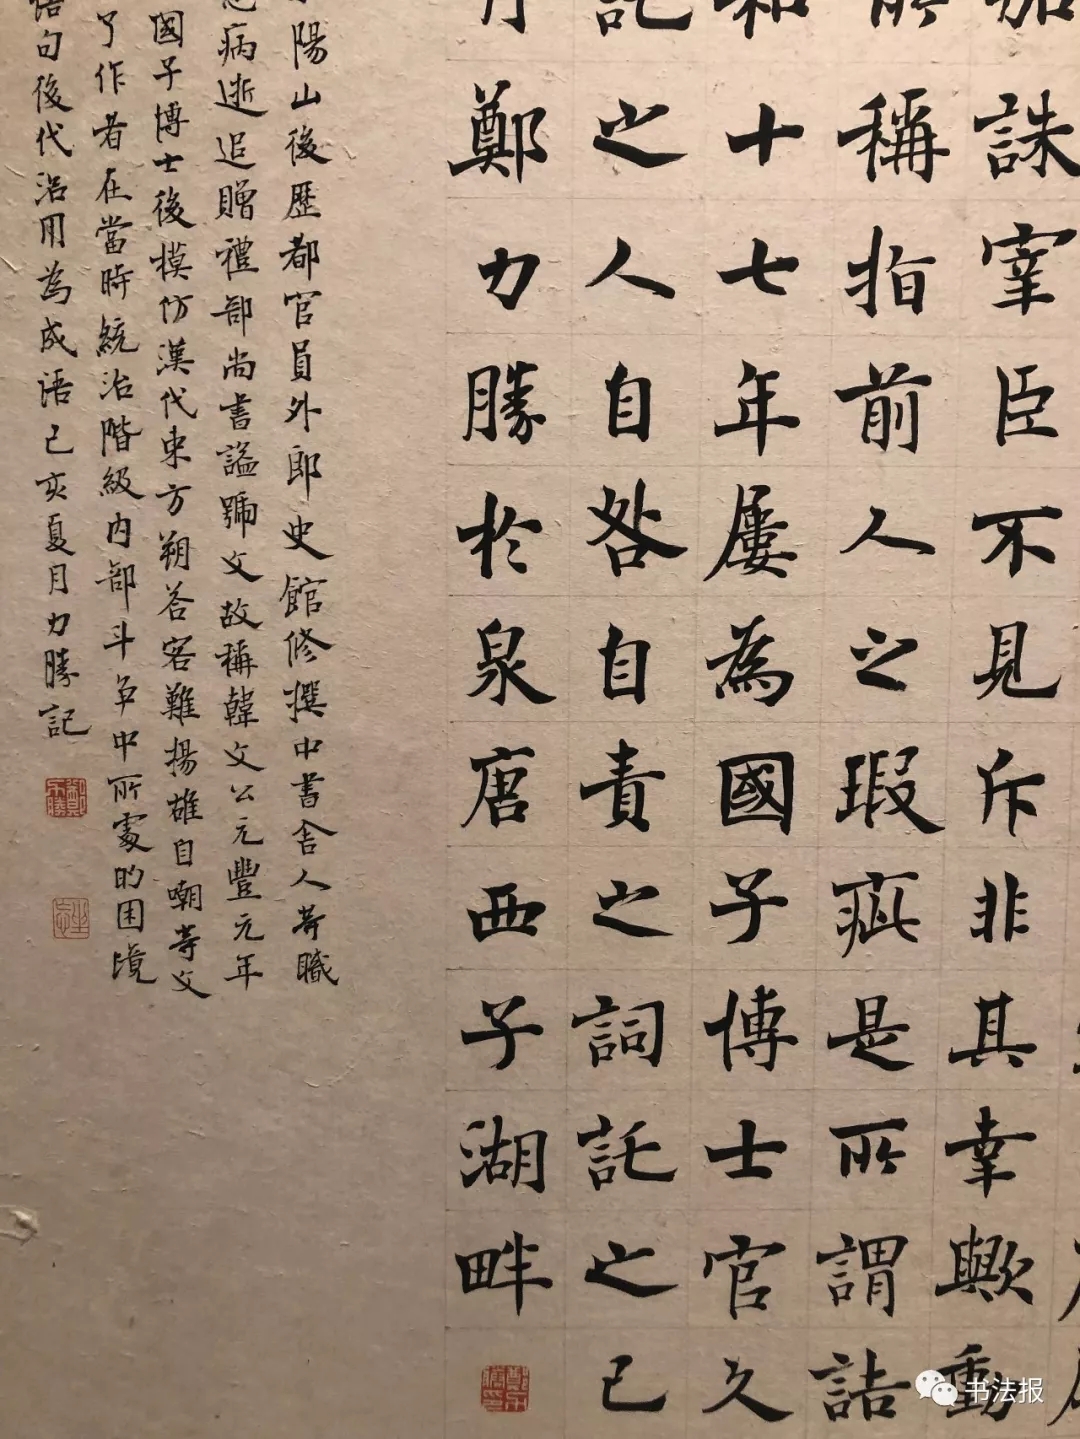 加誅宰臣不見斥非其幸歟動
稱指前人之瑕疵是所謂詰
和十七年屢為國子博士官久
託之人自咎自責之詞託之己
月鄭力勝於泉唐西子湖畔
陽山後歷都官員外郎史館修撰中書舍人等職
病逝追贈禮部尚書謚號文故稱韓文公元豐元年
國子博士後摸仿漢代東方朔答客難揚雄自嘲等文
了作者在當時統治階級内部斗争中所處的困境
語句後代沿用為成語己亥夏月力勝記
书法报